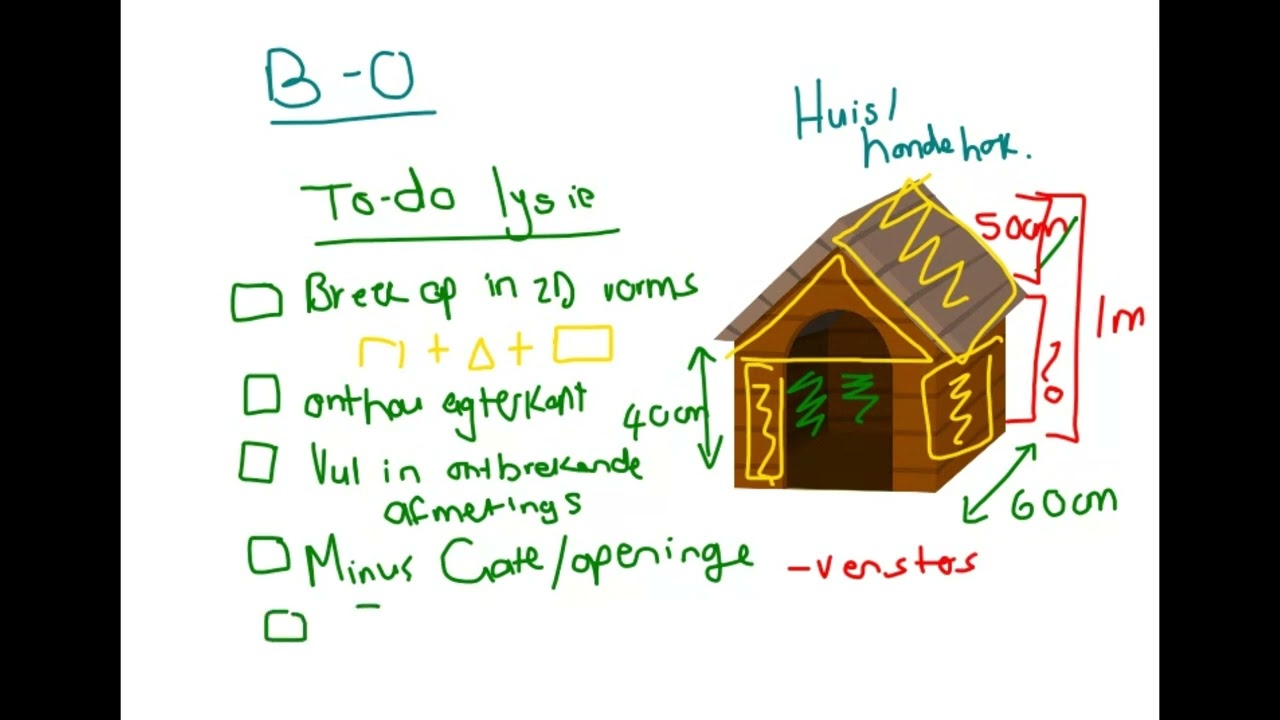 B-O
Huis/
hondehok.
To-do lysie
Breek op in 2D vorms
+ +
onthou agterkant
Vul in ontbrekende
afmetings
Minus Gate/openinge
-vensters
50cm
1m
?
40cm
60cm